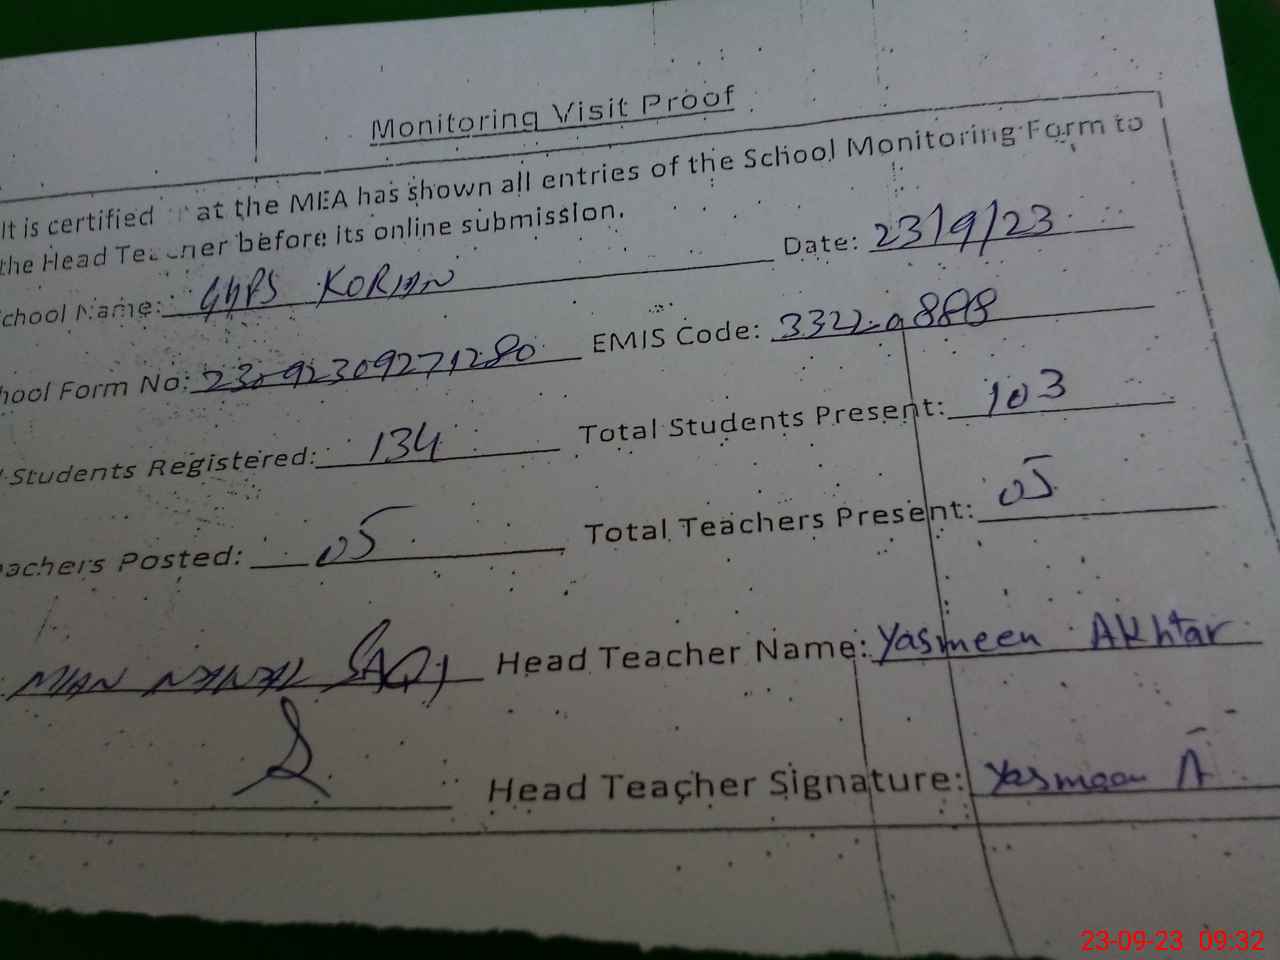 Monitoring Visit Proof
It is certified at the MEA has shown all entries of the School Monitoring Form to
the Head Teacher before its online submission.
chool Name: GGPS KORIAN Date: 23/9/23
hool Form No: EMIS Code:
Students Registered: 134 Total Students Present: 103
achers Posted: 05 Total Teachers Present: 05
MIAN Head Teacher Name: Yasmeen Akhtar
Head Teacher Signature: Yasmeen A
23-09-23 09:32